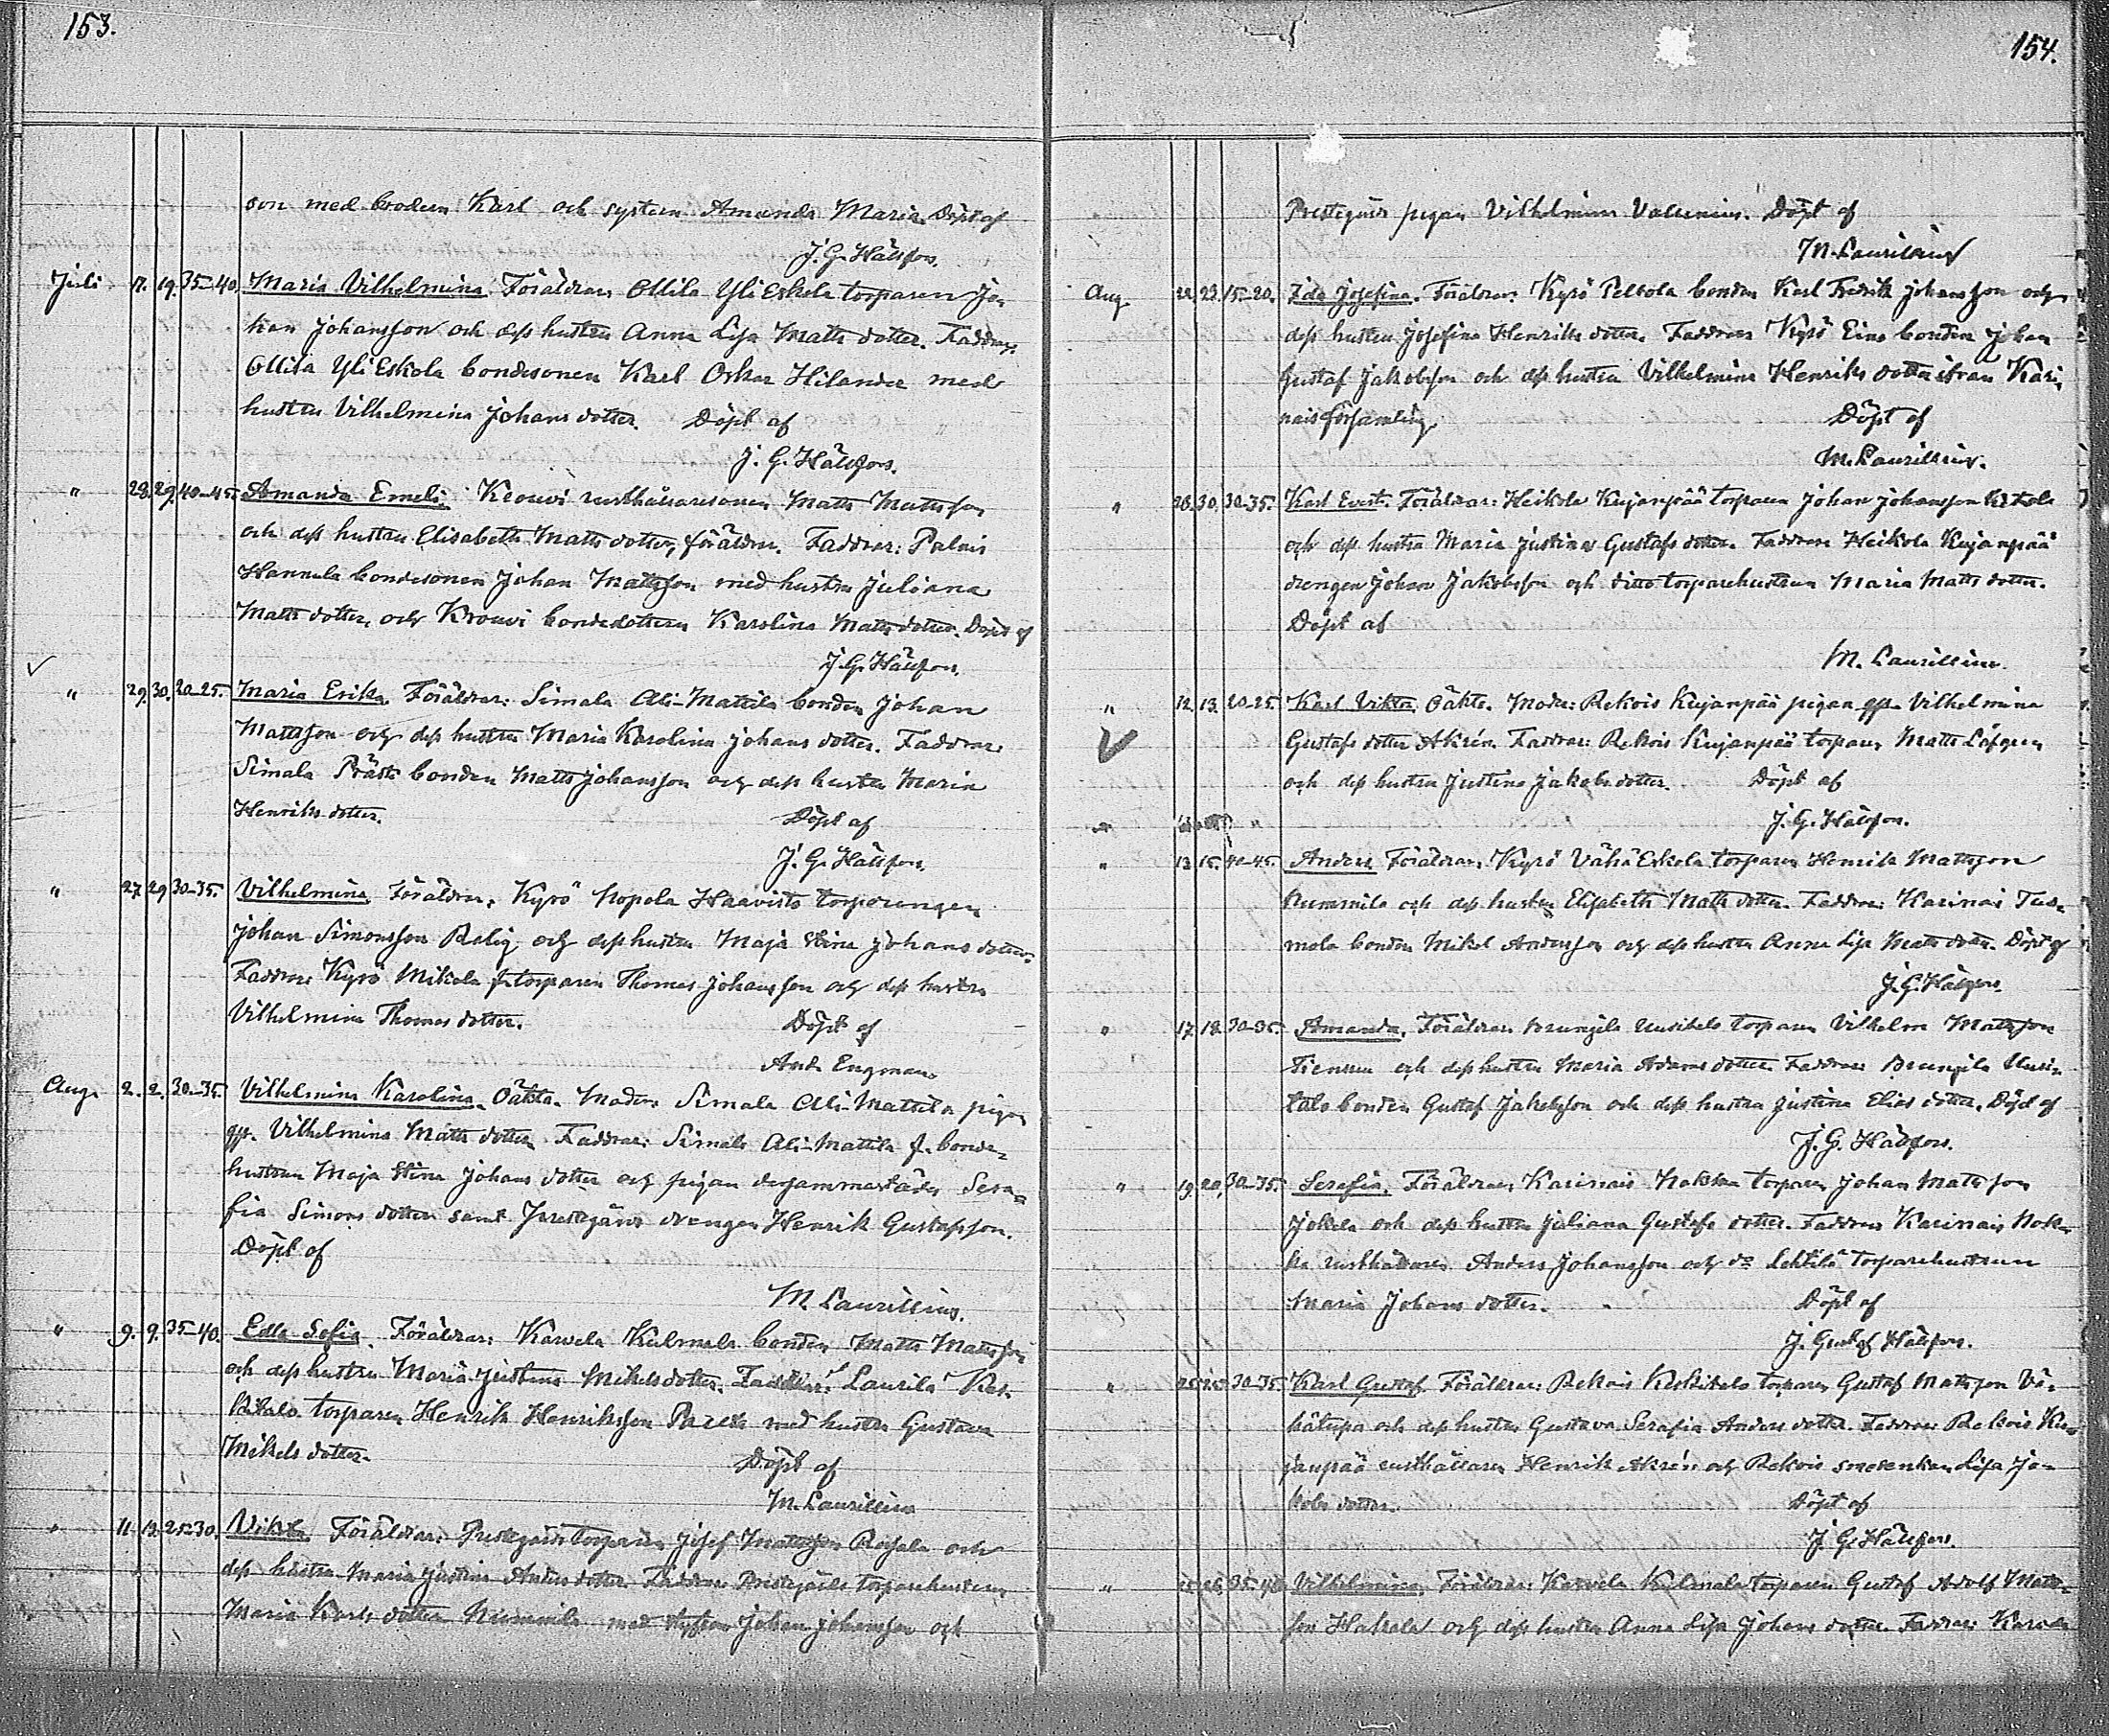 153.
son med brodern Karl och systern Amanda Maria. Döpt af
J. G. Hällfors.
Juli 17. 19. 35–40. Maria Vilhelmina. Föräldrar: Ollila Yli Eskola torparen Jo-
han Johansson och dess hustru Anna Lisa Matts dotter. Faddrar:
Ollila Yli Eskola bondesonen Karl Oskar Hilander med
hustru Vilhelmina Johans dotter. Döpt af
J. G. Hällfors.
" 28. 29. 40–45. Amanda Emeli. Krouvi rusthållaresonen Matts Mattsson
och dess hustru Elisabeth Matts dotter, föräldrar. Faddrar: Palais
Hannula bondesonen Johan Mattsson med hustru Juliana
Matts dotter, och Krouvi bondedottern Karolina Matts dotter. Döpt af
J. G. Hällfors.
" 29. 30. 20–25. Maria Erika. Föräldrar: Simala Ali-Mattila bonden Johan
Mattsson och dess hustru Maria Karolina Johans dotter. Faddrar:
Simala Prästi bonden Matts Johansson och dess hustru Maria
Henriks dotter. Döpt af
J. G. Hällfors.
" 27. 29. 30–35. Vilhelmina. Föräldrar: Kyrö Nopola Haavisto torpdrengen
Johan Simonsson Relig och dess hustru Maja Stina Johans dotter.
Faddrar: Kyrö Mikola f. torparen Thomas Johansson och dess hustru
Vilhelmina Thomas dotter. Döpt af
And. Engman.
Aug. 2. 2. 30–35. Vilhelmina Karolina. Oäkta. Moder: Simala Ali-Mattila pigan
Vilhelmina Matts dotter. Faddrar: Simala Ali-Mattila f. bonde-
hustrun Maja Stina Johans dotter och pigan dersammastädes Sera-
fia Simons dotter samt Prestegårds drengen Henrik Gustafsson.
Döpt af
M. Laurillius.
" 9. 9. 35–40. Edla Sofia. Föräldrar: Karvela Kulmala bonden Matts Mattsson
och dess hustru Maria Justina Mikels dotter. Faddrar: Laurila Kes-
kitalo torparen Henrik Henriksson med hustru Gustava
Mikels dotter. Döpt af
M. Laurillius
" 11. 12. 25–30. Viktor. Föräldrar: Prestegårds torparen Josef Mattsson och
dess hustru Maria Justina Anders dotter. Faddrar: Prestegårds torparehustrun
Maria Karls dotter Nummila med styfson Johan Johansson och
154.
Prestegårds pigan Vilhelmina Valenius. Döpt af
M. Laurillius
Aug. 22. 23. 15–20. Ida Josefina. Föräldrar: Kyrö Peltola bonden Karl Fredrik Johansson och
dess hustru Josefina Henriks dotter. Faddrar: Kyrö Eino bonden Johan
Gustaf Jakobsson och dess hustru Vilhelmina Henriks dotter ifrån Kari-
nais församling. Döpt af
M. Laurillius.
" 28. 30. 30–35. Karl Evert. Föräldrar: Heikola Kujanpää torparen Johan Johansson
och dess hustru Maria Justina Gustafs dotter. Faddrar: Heikola Kujanpää
drengen Johan Jakobsson och ditto torparehustrun Maria Matts dotter.
Döpt af
M. Laurillius.
" 12. 13. 20–25. Karl Viktor. Oäkta. Moder: Rekois Kujanpää pigan Vilhelmina
Gustafs dotter Akrén. Faddrar: Rekois Kujanpää torparen Matts Löfgren
och dess hustru Justina Jakobs dotter. Döpt af
J. G. Hällfors.
" 13. 15. 40–45. Anders. Föräldrar: Kyrö Vähä Eskola torparen Henrik Mattsson
Nummila och dess hustru Elisabeth Matts dotter. Faddrar: Karinais Tuo-
mola bonden Mikel Andersson och dess hustru Anna Lisa Matts dotter. Döpt af
J. G. Hällfors.
" 17. 18. 30–35. Amanda. Föräldrar: Brungila Uusitalo torparen Vilhelm Mattsson
och dess hustru Maria Adams dotter. Faddrar: Brungila Uusi-
talo bonden Gustaf Jakobsson och dess hustru Justina Elias dotter. Döpt af
J. G. Hällfors.
" 19. 20. 30–35. Serafia. Föräldrar: Karinais Nokka torparen Johan Mattsson
Jokela och dess hustru Juliana Gustafs dotter. Faddrar: Karinais Nok-
ka rusthållaren Anders Johansson och d:o Lehtilä torparehustrun
Maria Johans dotter. Döpt af
J. Gustaf Hällfors.
" 30–35. Karl Gustaf. Föräldrar: Rekois Keskitalo torparen Gustaf Mattsson Vä-
hätupa och dess hustru Gustava Serafia Anders dotter. Faddrar: Rekois Ku-
janpää rusthållaren Henrik Akrén och Rekois smedenkan Lisa Ja-
kobs dotter. Döpt af
J. G. Hällfors.
" Vilhelmina. Föräldrar: Karvela Kylmala torparen Gustaf Adolf Matts-
son Hakala och dess hustru Anna Lisa Johans dotter. Faddrar: Karvela